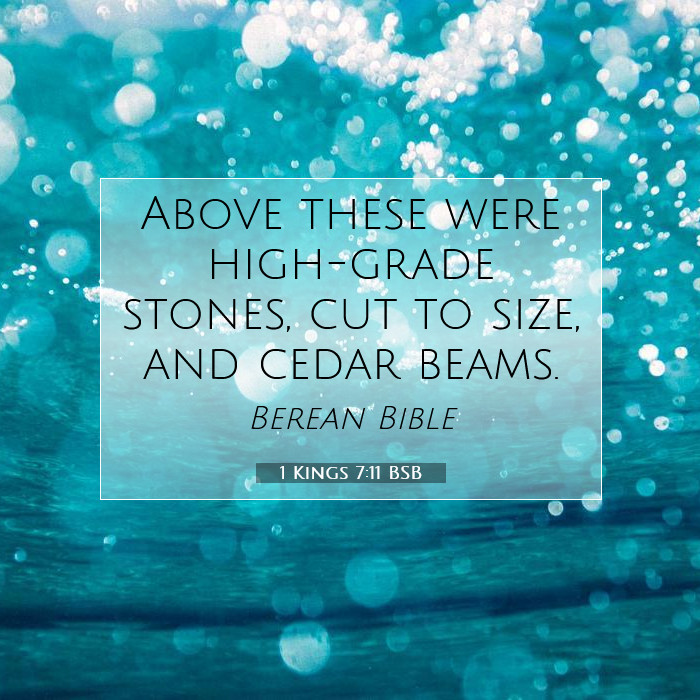 Above these were
high-grade
stones, cut to size,
and cedar beams.
Berean Bible
1 Kings 7:11 BSB